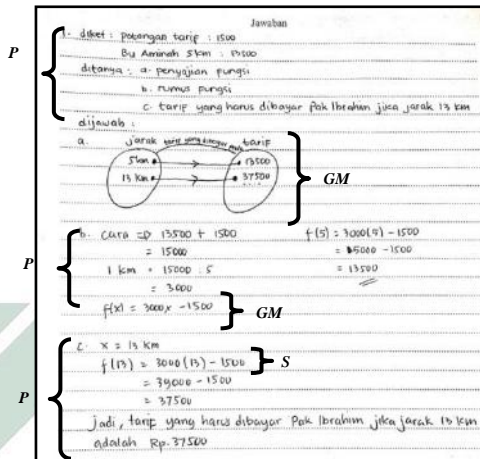 Jawaban
P
1. diket : potongan tarif : 1500
Bu Aminah 5km : 13500
ditanya : a. penyajian fungsi
b. rumus fungsi
c. tarif yang harus dibayar Pak Ibrahim jika jarak 13 km
dijawab :
a. jarak tarif yang dibayar pada tarif
5km 13500
13 km 37500
GM
P
b. cara => 13500 + 1500 f(5) = 3000(5) - 1500
= 15000 = 15000 - 1500
1 km = 15000 : 5 = 13500
= 3000
f(x) = 3000x - 1500
GM
P
c. x = 13 km
f(13) = 3000(13) - 1500 S
= 39000 - 1500
= 37500
jadi, tarif yang harus dibayar Pak Ibrahim jika jarak 13 km
adalah Rp. 37500